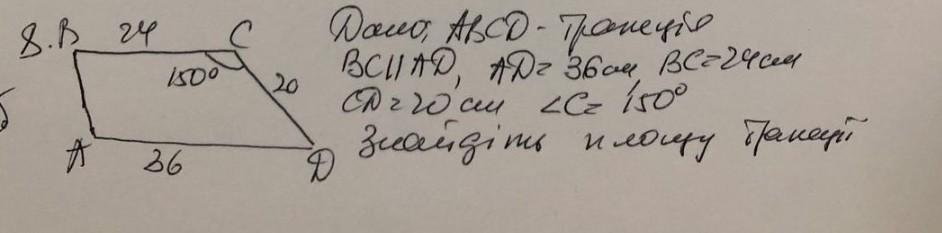 8. B 24 C
150° 20
A 36 D
Дано, ABCD - Трапеція
BC||AD, AD = 36 см, BC = 24 см
CD = 20 см ∠C = 150°
Знайдіть площу Трапеції